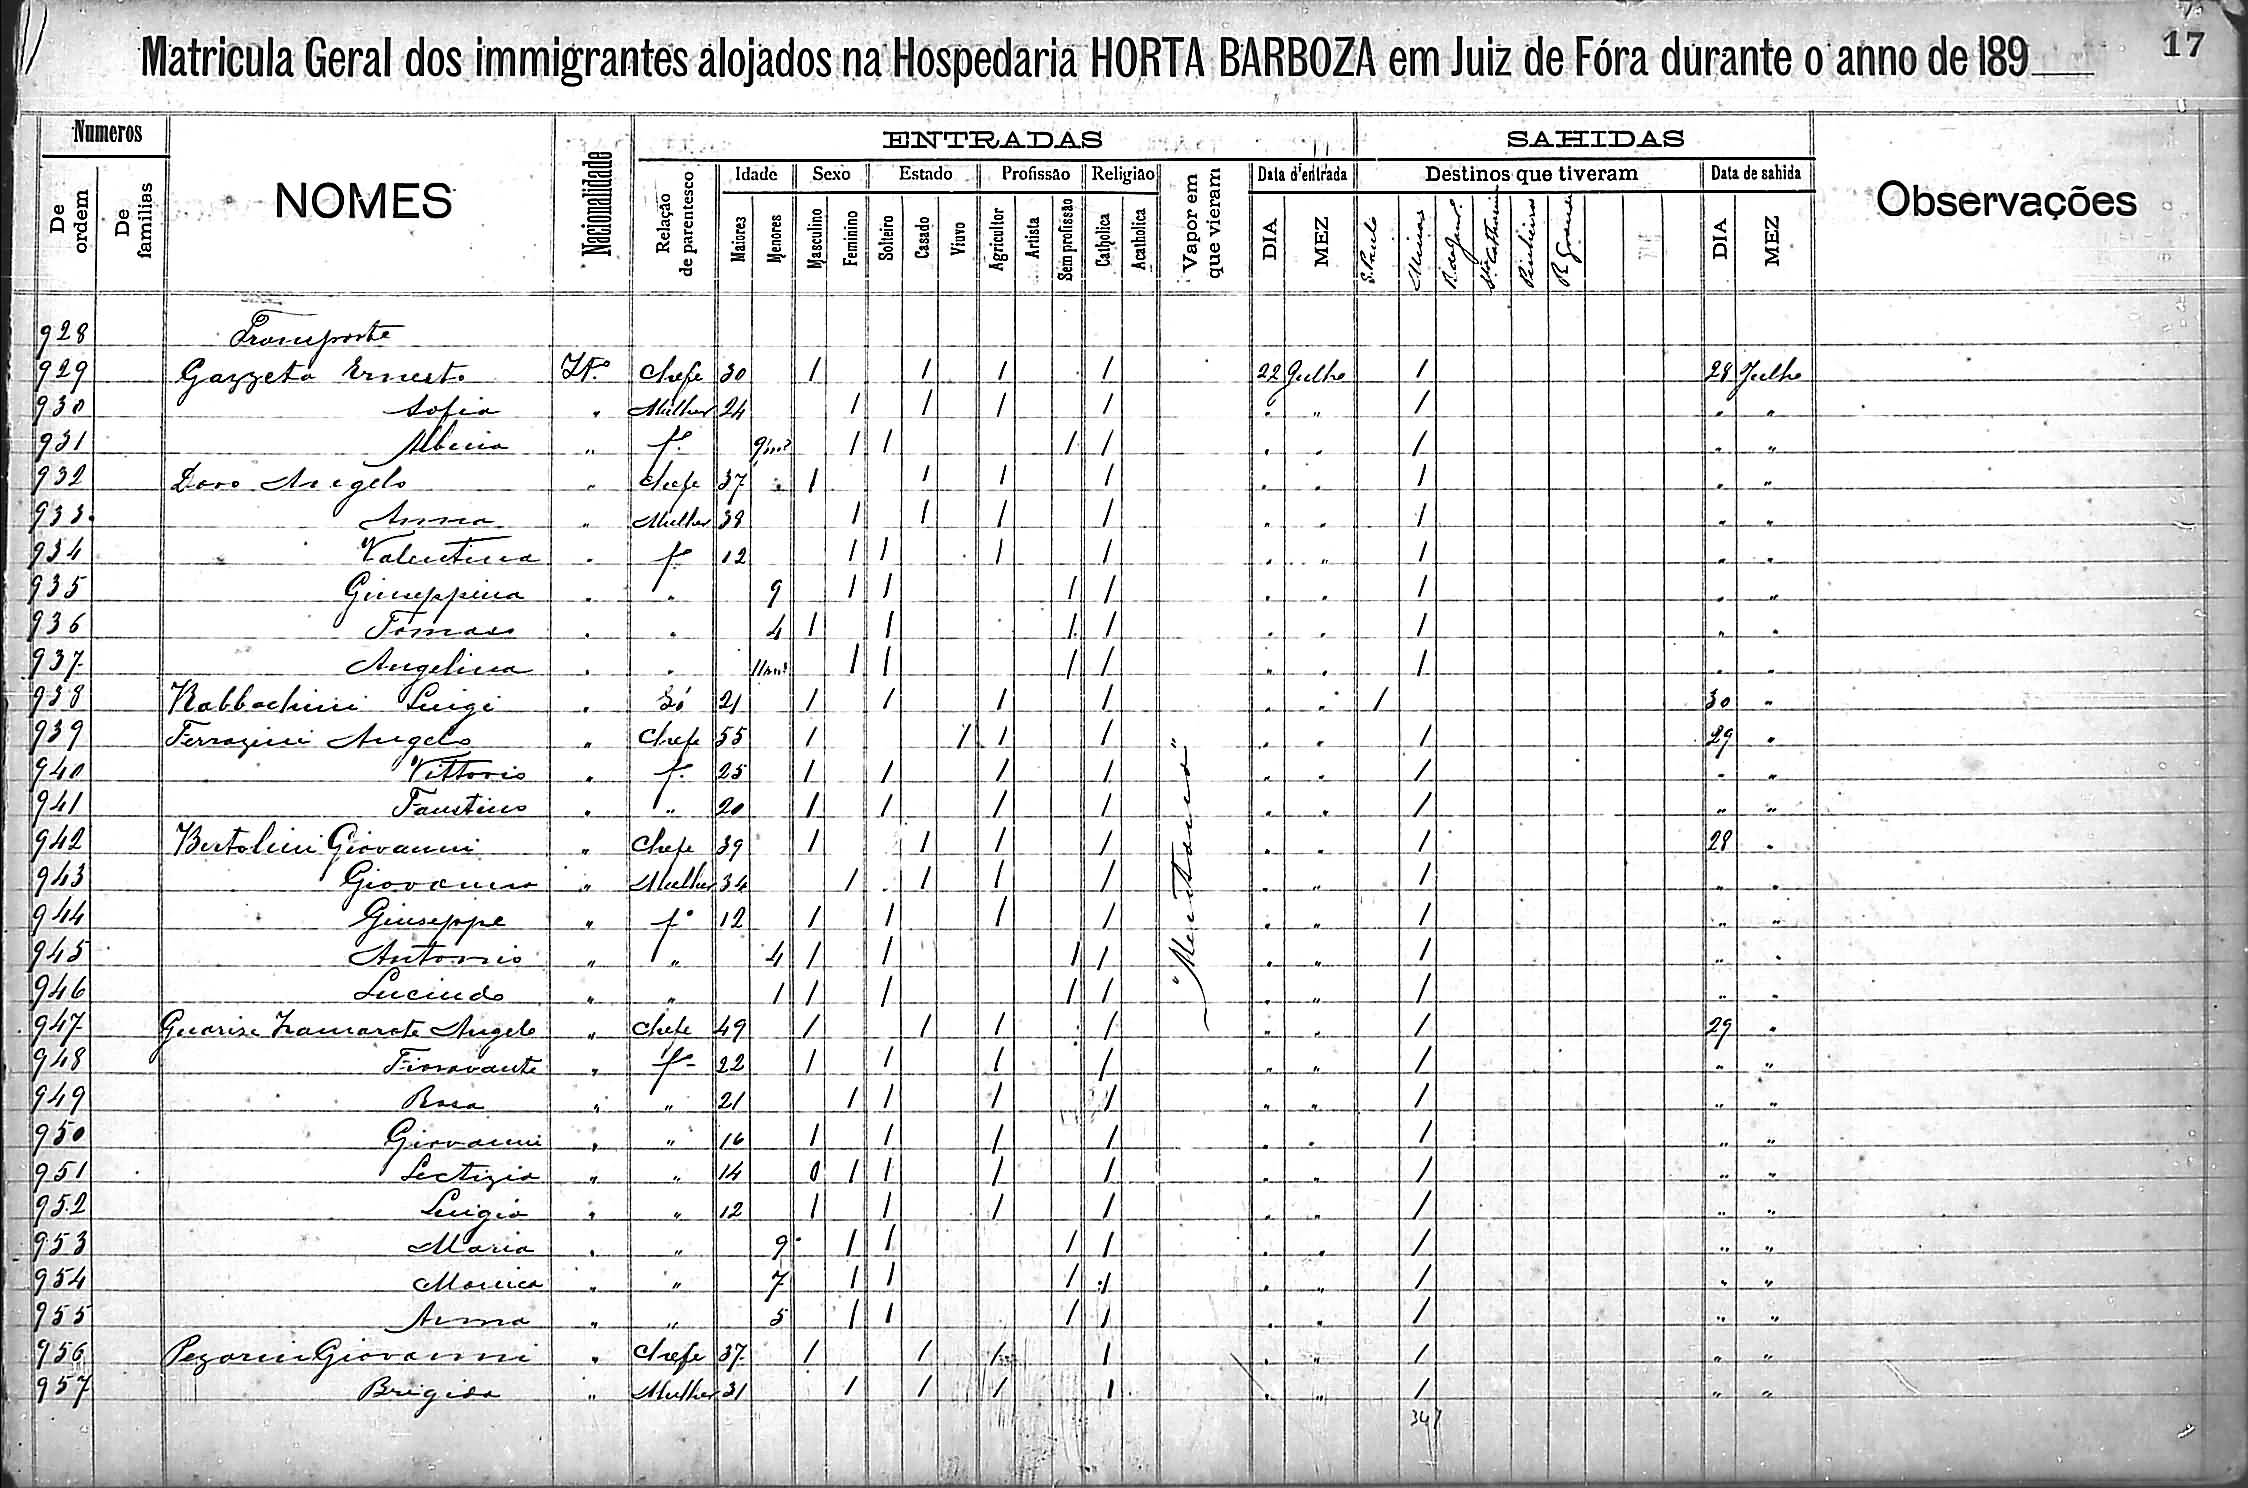 17
Matricula Geral dos immigrantes alojados na Hospedaria HORTA BARBOZA em Juiz de Fóra durante o anno de 189
Numeros ENTRADAS SAHIDAS
De ordem De familias NOMES Nacionalidade Relação de parentesco Idade Sexo Estado Profissão Religião Vapor em que vieram Data d'entrada Destinos que tiveram Data de sahida Observações
Maiores Menores Masculino Feminino Solteiro Casado Viuvo Agricultor Artista Sem profissão Catholica Acatholica DIA MEZ S. Paulo Minas Sta Catharina Pinheiros R Grande DIA MEZ
928 Transporte
929 Gazzeta Ernesto It.º Chefe 30 1 1 1 1 22 Julho 1 28 Julho
930 Sofia " Mulher 24 1 1 1 1 " " 1 " "
931 Albina " f. 9 m.s 1 1 1 1 " " 1 " "
932 Doro Angelo " Chefe 37 1 1 1 1 " " 1 " "
933 Anna " Mulher 38 1 1 1 1 " " 1 " "
934 Valentina " f. 12 1 1 1 1 " " 1 " "
935 Giuseppina " " 9 1 1 1 1 " " 1 " "
936 Tomaso " " 4 1 1 1 1 " " 1 " "
937 Angelina " " 11 m.s 1 1 1 1 " " 1 " "
938 Rabbachini Luigi " Só 21 1 1 1 1 " " 1 30 "
939 Ferrazini Angelo " Chefe 55 1 1 1 1 " " 1 29 "
940 Vittorio " f. 25 1 1 1 1 " " 1 " "
941 Faustino " " 20 1 1 1 1 " " 1 " "
942 Bertolini Giovanni " Chefe 39 1 1 1 1 " " 1 28 "
943 Giovanna " Mulher 34 1 1 1 1 " " 1 " "
944 Giuseppe " f. 12 1 1 1 1 " " 1 " "
945 Antonio " " 4 1 1 1 1 " " 1 " "
946 Lucindo " " 1 1 1 1 1 " " 1 " "
947 Guarise Angelo " Chefe 49 1 1 1 1 " " 1 29 "
948 Fioravante " f. 22 1 1 1 1 " " 1 " "
949 Rosa " " 21 1 1 1 1 " " 1 " "
950 Giovanni " " 16 1 1 1 1 " " 1 " "
951 Lectizia " " 14 0 1 1 1 1 " " 1 " "
952 Luigia " " 12 1 1 1 1 " " 1 " "
953 Maria " " 9 1 1 1 1 " " 1 " "
954 Monica " " 7 1 1 1 1 " " 1 " "
955 Anna " " 5 1 1 1 1 " " 1 " "
956 Pezarini Giovanni " Chefe 37 1 1 1 1 " " 1 " "
957 Brigida " Mulher 31 1 1 1 1 " " 1 " "
347